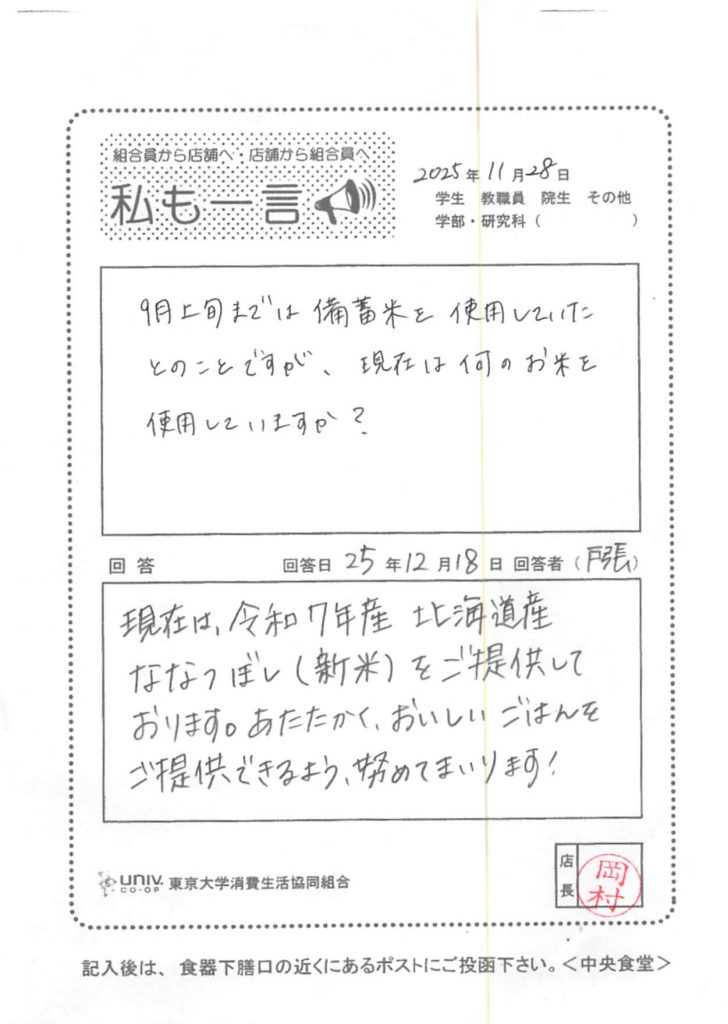 組合員から店舗へ・店舗から組合員へ
私も一言
2025年11月28日
学生 教職員 院生 その他
学部・研究科( )
9月上旬までは備蓄米を使用していた
とのことですが、現在は何のお米を
使用していますか?
回答 回答日 25年12月18日 回答者(戸張)
現在は、令和7年産 北海道産
ななつぼし(新米)をご提供して
おります。あたたかく、おいしいごはんを
ご提供できるよう、努めてまいります!
UNIV. CO-OP 東京大学消費生活協同組合
店長 岡村
記入後は、食器下膳口の近くにあるポストにご投函下さい。<中央食堂>